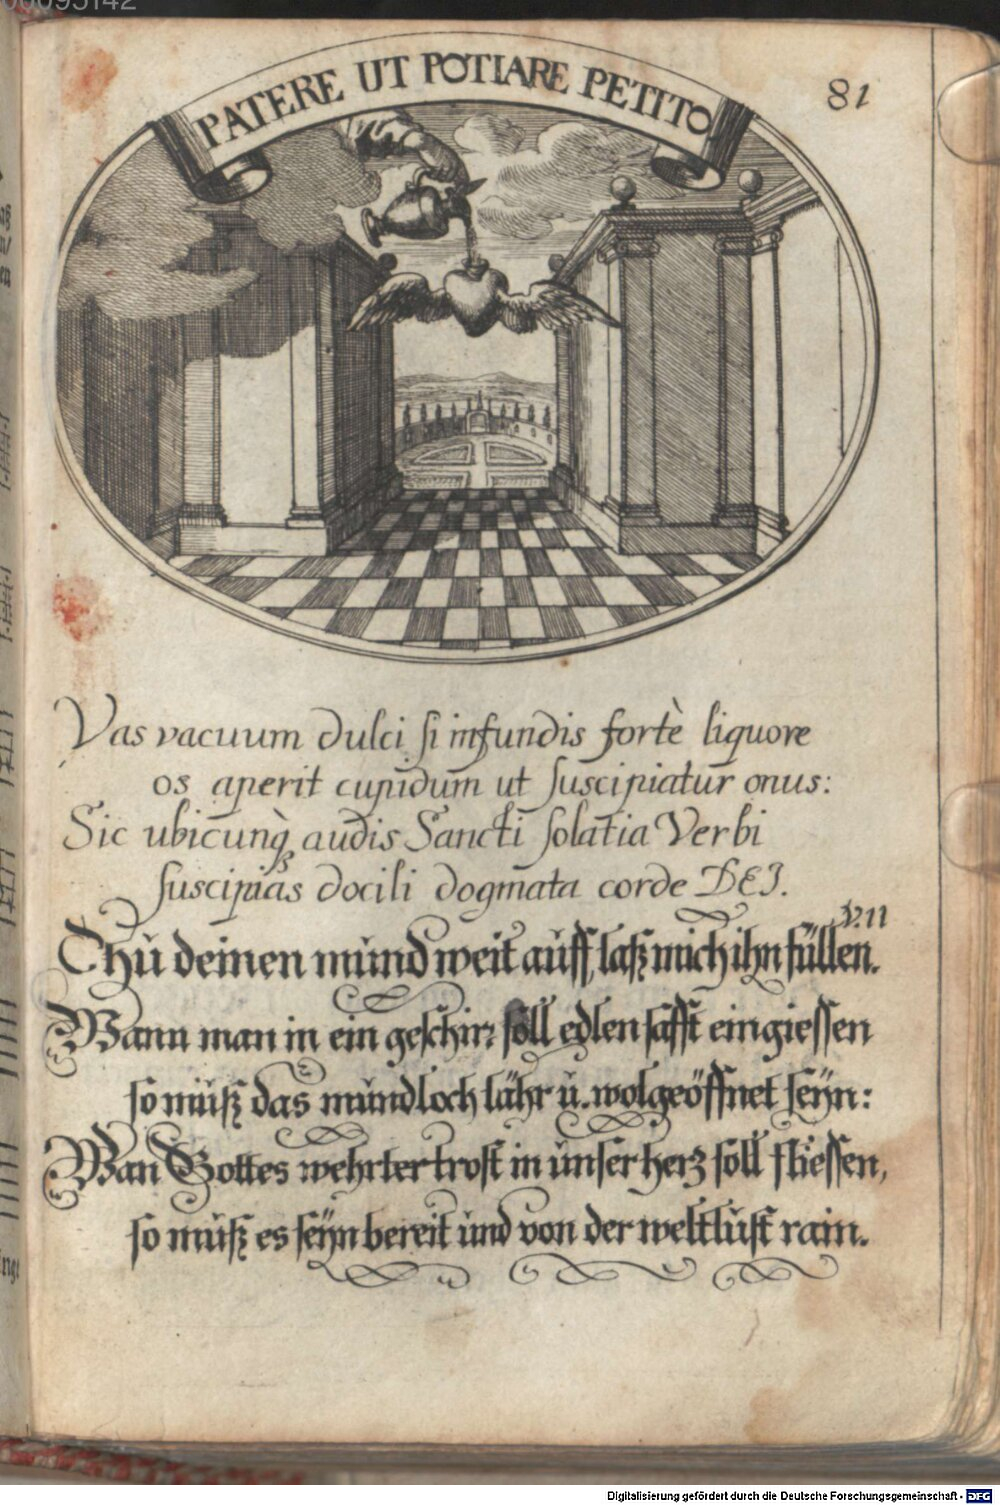 00095142
PATERE UT POTIARE PETITO
81
Vas vacuum dulci si infundis fortè liquore
os aperit cupidum ut suscipiatur onus:
Sic ubicunq₃ audis Sancti solatia Verbi
suscipias docili dogmata corde DEI.
v.11
Thu deinen mund weit auff, laß mich ihn füllen.
Wann man in ein geschirr soll edlen safft eingiessen
so muß das mundloch lähr u. wolgeöffnet seyn:
Wan Gottes wehrter trost in unser herz soll fliessen,
so muß es seyn bereit und von der weltlust rain.
Digitalisierung gefördert durch die Deutsche Forschungsgemeinschaft - DFG